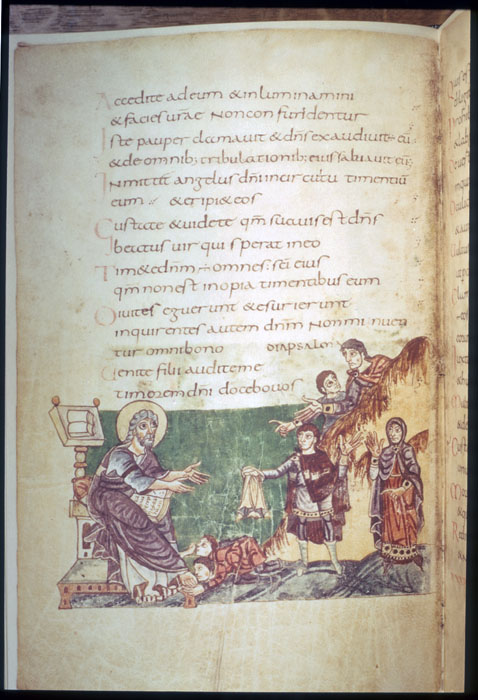 Accedite ad eum & inluminamini
& facies urae Non confundentur
Iste pauper clamauit & dn̄s exaudiuit eū
& de omnib; tribulationib; eius saluauit eū
Inmittit angelus dn̄i in circuitu timentiū
eum ÷ & eripi& eos
Gustate & uidete qm̄ suauis est dn̄s
beatus uir qui sperat in eo
Tim&e dn̄m ÷ omnes: sc̄i eius
qm̄ non est inopia timentibus eum
Diuites eguerunt & esurierunt
inquirentes autem dn̄m Non minuen
tur omni bono DIAPSALM̄
Uenite filii audite me
timorem dn̄i docebo uos